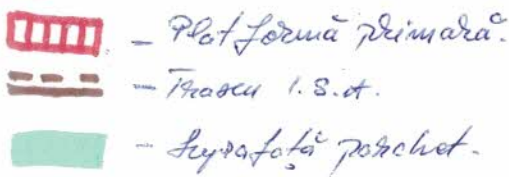 - Platformă primară.
- Traseu I.S.A.
- Suprafață parchet.